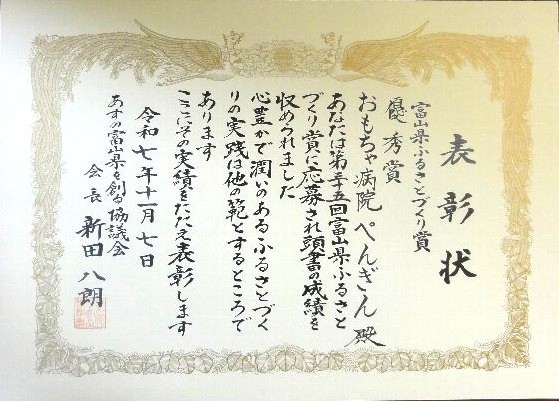 表彰状
富山県ふるさとづくり賞
優秀賞
おもちゃ病院 ぺんぎん 殿
あなたは第三十五回富山県ふるさと
づくり賞に応募され頭書の成績を
収められました
心豊かで潤いのあるふるさとづく
りの実践は他の範とするところで
あります
ここにその実績をたたえ表彰します
令和七年十一月七日
あすの富山県を創る協議会
会長 新田八朗